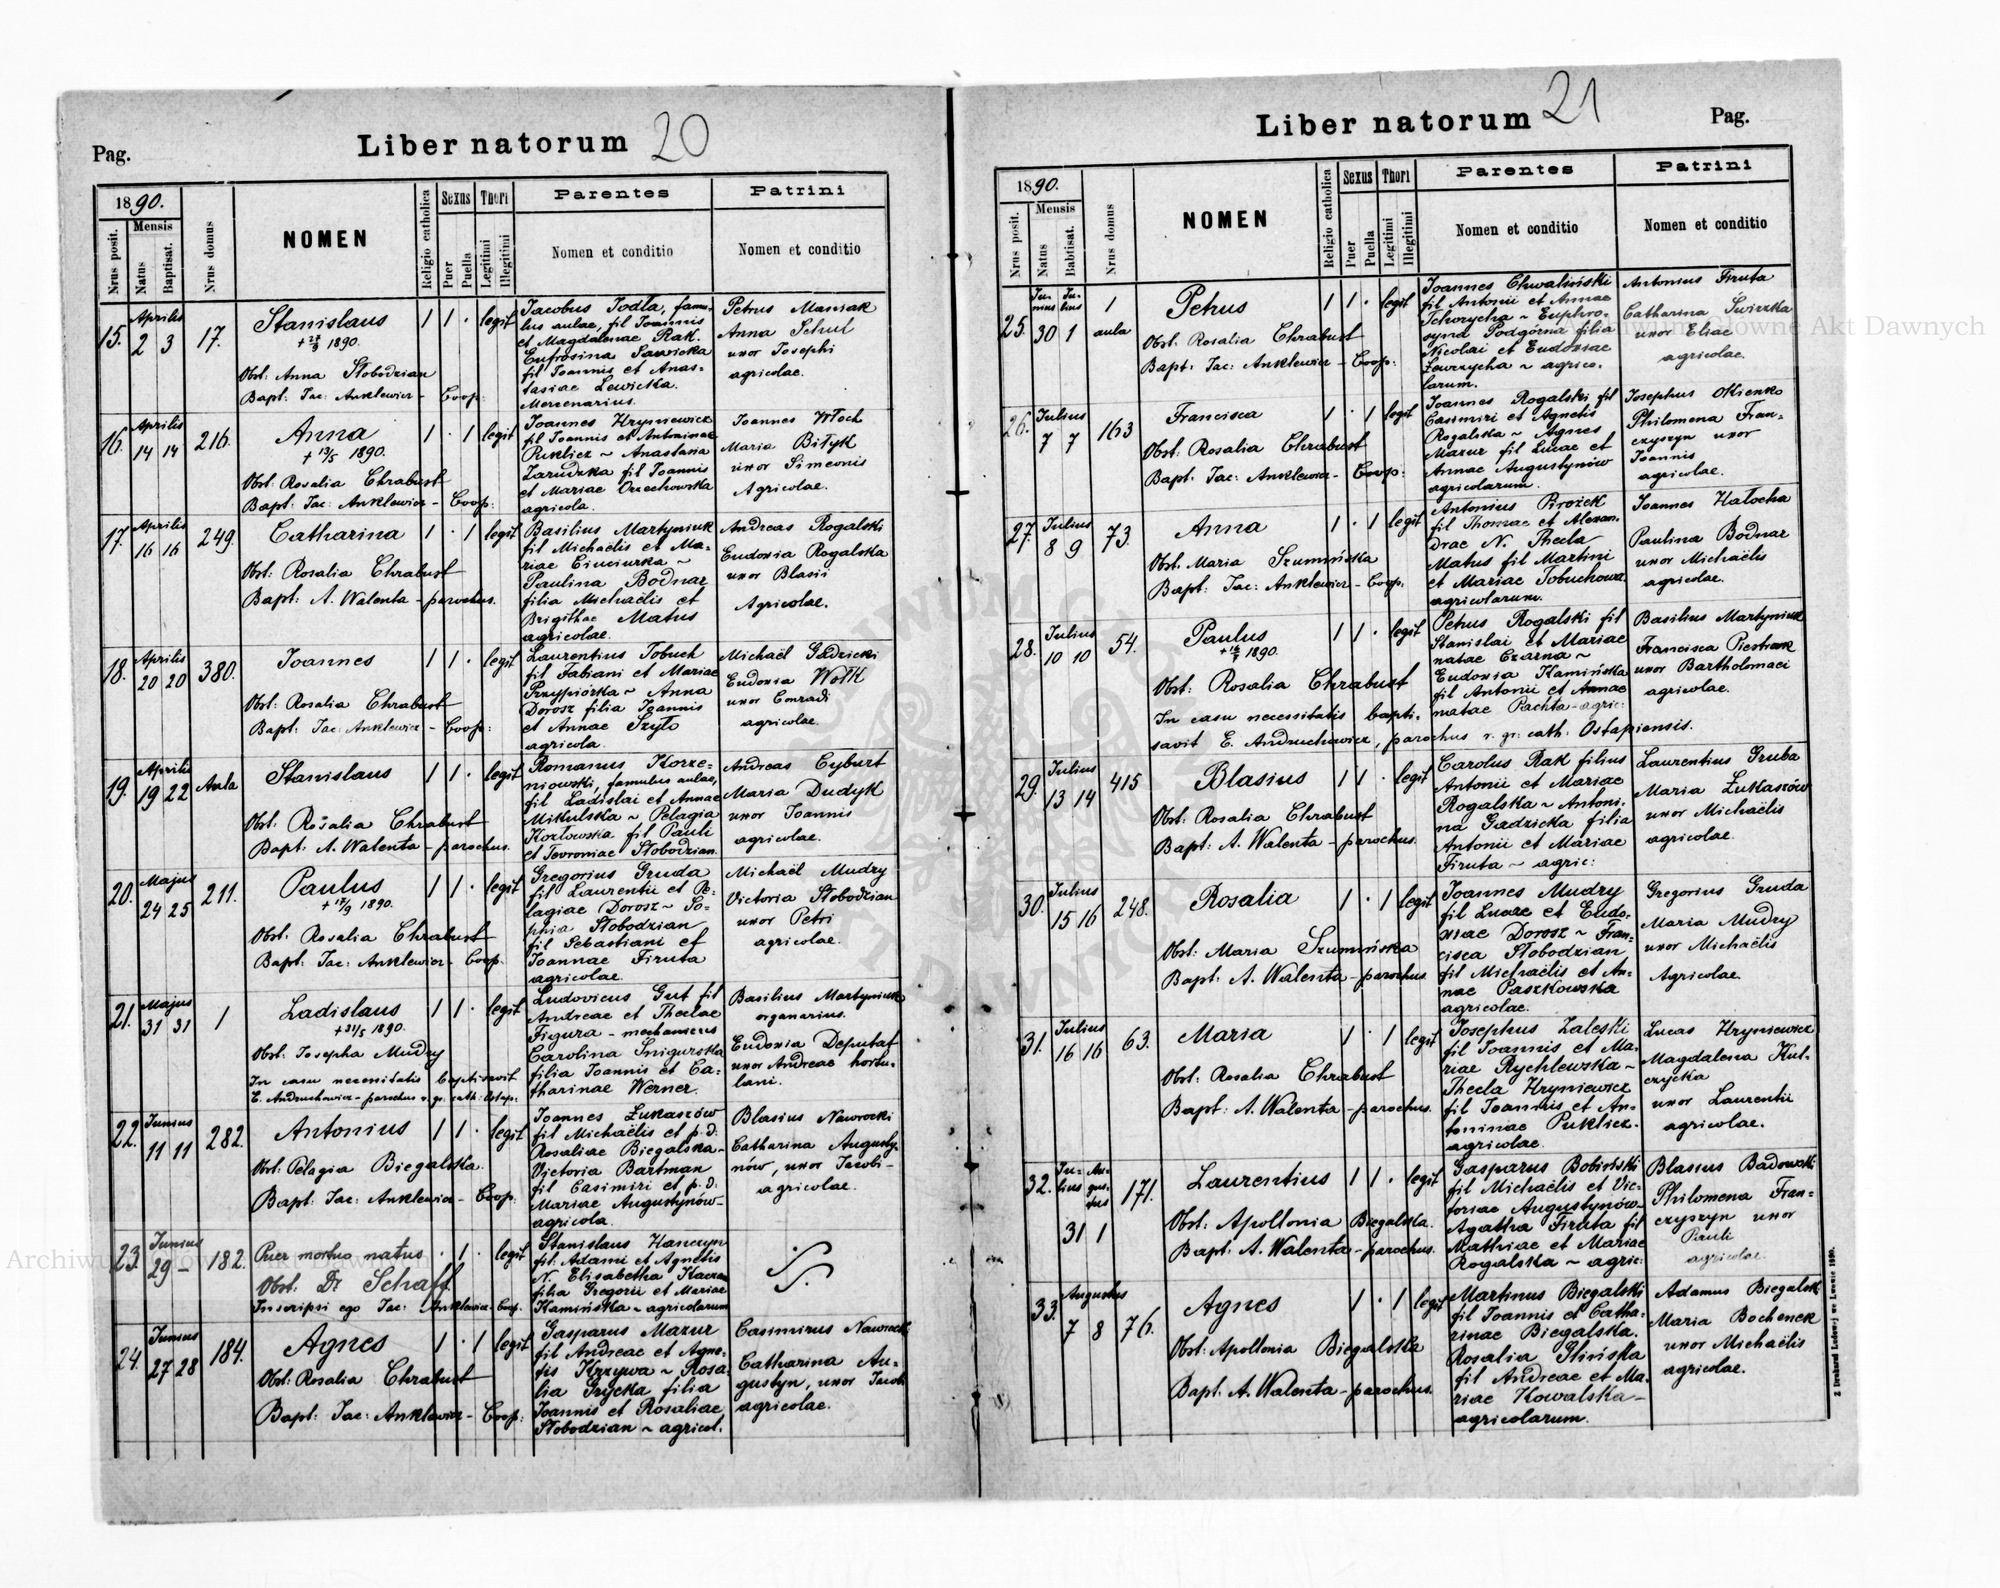 Pag.
Liber natorum 20
1890.
Nrus posit.
Mensis
Natus
Baptisat.
Nrus domus
NOMEN
Religio catholica
Sexus
Puer
Puella
Thori
Legitimi
Illegitimi
Parentes
Nomen et conditio
Patrini
Nomen et conditio
15.
Aprilis
2 3
17.
Stanislaus
1890.
Obst: Anna Słobodzian
Bapt: Jac: Anklewicz - Coop:
1 1 · legit
Jacobus Jodla, famu-
lus aulae, fil Joannis
et Magdalenae Rak.
Eufrosina Sawicka
fil Joannis et Anas-
tasiae Lewicka.
Mercenarius.
Petrus Masniak
Anna
uxor Josephi
agricolae.
16.
Aprilis
14 14
216.
Anna
+ 13/5 1890.
Obst: Rosalia Chrabust
Bapt: Jac: Anklewicz - Coop:
1 · 1 legit
Joannes Hryniewicz
fil Joannis et Antoninae
Puklicz ~ Anastasia
Zarudzka fil Joannis
et Mariae Orzechowska
agricola.
Joannes Włoch
Maria Biłyk
uxor Simeonis
Agricolae.
17.
Aprilis
16 16
249.
Catharina
Obst: Rosalia Chrabust
Bapt: A. Walenta - parochus.
1 · 1 legit
Basilius Martyniuk
fil Michaëlis et Ma-
riae Ciuciurka ~
Paulina Bodnar
filia Michaëlis et
Brigithae Matus
agricolae.
Andreas Rogalski
Eudoxia Rogalska
uxor Blasii
Agricolae.
18.
Aprilis
20 20
380.
Joannes
Obst: Rosalia Chrabust
Bapt: Jac: Anklewicz - Coop:
1 1 · legit
Laurentius Tobuch
fil Fabiani et Mariae
Przypiórka ~ Anna
Dorosz filia Joannis
et Annae Szyło
agricola.
Michaël Gadzicki
Eudoxia Wołk
uxor Conradi
agricolae.
19.
Aprilis
19 22
Aula
Stanislaus
Obst: Rosalia Chrabust
Bapt: A. Walenta - parochus.
1 1 · legit
Romanus Korze-
niowski, famulus aulae,
fil Ladislai et Annae
Mikulska ~ Pelagia
Kozłowska fil Pauli
et Tevroniae Słobodzian.
Andreas Cyburt
Maria Dudyk
uxor Joannis
agricolae.
20.
Majus
24 25
211.
Paulus
+ 17/9 1890.
Obst: Rosalia Chrabust
Bapt: Jac: Anklewicz - Coop.
1 1 · legit
Gregorius Gruda
fil Laurentii et Pe-
lagiae Dorosz ~ So-
phia Słobodzian
fil Sebastiani et
Joannae Firuta
agricolae
Michaël Mudry
Victoria Słobodzian
uxor Petri
agricolae.
21.
Majus
31 31
1
Ladislaus
+ 31/5 1890.
Obst: Josepha Mudry
In casu necessitatis baptisavit
E. Andruchowicz - parochus r. gr: cath: Ostap:
1 1 · legit
Ludovicus Gut fil
Andreae et Theclae
Figura - mechanicus
Carolina Snigurska
filia Joannis et Ca-
tharinae Werner.
Basilius Martyniuk
organarius.
Eudoxia Deputat
uxor Andreae hortu-
lani.
22.
Junius
11 11
282.
Antonius
Obst: Pelagia Biegalska.
Bapt: Jac: Anklewicz - Coop:
1 1 · legit
Joannes Łukaszów
fil Michaëlis et p. d:
Rosaliae Biegalska ~
Victoria Bartman
fil Casimiri et p. d:
Mariae Augustynów -
agricola.
Blasius Nawrocki
Catharina Augusty-
nów, uxor Jacobi -
agricolae.
23.
Junius
29 -
182.
Puer mortuo natus
Obst: Dr Schaff
Inscripsi ego Jac: Anklewicz - Coop.
· 1 · legit
Stanislaus Hanczyn
fil: Adami et Agnetis
N. Elisabetha
filia Gregorii et Mariae
Kamińska ~ agricolarum
24.
Junius
27 28
184.
Agnes
Obst: Rosalia Chrabust
Bapt: Jac: Anklewicz - Coop:
1 · 1 legit
Gasparus Mazur
fil Andreae et Agne-
tis Krzywa ~ Rosa-
lia Grycka filia
Joannis et Rosaliae
Słobodzian ~ agricol.
Casimirus Nawrocki
Catharina Au-
gustyn, uxor Jacobi
agricolae.
Liber natorum 21
Pag.
1890.
Nrus posit.
Mensis
Natus
Babtisat.
Nrus domus
NOMEN
Religio catholica
Sexus
Puer
Puella
Thori
Legitimi
Illegitimi
Parentes
Nomen et conditio
Patrini
Nomen et conditio
25.
Ju- Ju-
nius lius
30 1
1
aula
Petrus
Obst: Rosalia Chrabust
Bapt: Jac: Anklewicz - Coop:
1 1 · legit
Joannes Chwaliński
fil Antonii et Annae
Tchorzycha ~ Euphro-
syna Podgórna filia
Nicolai et Eudoxiae
agrico-
larum.
Antonius Firuta
Catharina Swirzka
uxor Eliae
agricolae.
26.
Julius
7 7
163
Francisca
Obst: Rosalia Chrabust
Bapt: Jac: Anklewicz - Coop:
1 · 1 legit
Joannes Rogalski fil
Casimiri et Agnetis
Rogalska ~ Agnes
Mazur fil Lucae et
Annae Augustynów
agricolarum.
Josephus Okienko
Philomena Fran-
czyszyn uxor
Joannis
agricolae.
27.
Julius
8 9
73.
Anna
Obst: Maria Szumińska
Bapt: Jac: Anklewicz - Coop:
1 · 1 legit
Antonius Pirożek
fil Thomae et Alexan-
drae N. Thecla
Matus fil Martini
et Mariae Tobuchowa.
agricolarum.
Joannes Hałocha
Paulina Bodnar
uxor Michaëlis
agricolae.
28.
Julius
10 10
54.
Paulus
1890.
Obst: Rosalia Chrabust
In casu necessitatis bapti-
savit E. Andruchowicz, parochus r. gr: cath: Ostapiensis.
1 1 · legit
Petrus Rogalski fil
Stanislai et Mariae
natae Czarna ~
Eudoxia Kamińska
fil Antonii et Annae
natae Pachta - agric:
Basilius Martyniuk
Francisca Piestrak
uxor Bartholomaei
agricolae.
29.
Julius
13 14
415
Blasius
Obst: Rosalia Chrabust
Bapt: A. Walenta - parochus.
1 1 · legit
Carolus Rak filius
Antonii et Mariae
Rogalska ~ Antoni-
na Gadzicka filia
Antonii et Mariae
Firuta ~ agric:
Laurentius Gruba
Maria Łukaszów
uxor Michaëlis
agricolae.
30.
Julius
15 16
248.
Rosalia
Obst: Maria Szumińska
Bapt: A. Walenta - parochus
1 · 1 legit
Joannes Mudry
fil Lucae et Eudo-
xiae Dorosz ~ Fran-
cisca Słobodzian
fil Michaëlis et An-
nae Paszkowska
agricolae.
Gregorius Gruda
Maria Mudry
uxor Michaëlis
Agricolae.
31.
Julius
16 16
63.
Maria
Obst: Rosalia Chrabust
Bapt: A. Walenta - parochus.
1 · 1 legit
Josephus Zaleski
fil Joannis et Ma-
riae Rychlewska ~
Thecla Hryniewicz
fil Joannis et An-
toninae Puklicz.
agricolae.
Lucas Hryniewicz
Magdalena Kul-
czycka
uxor Laurentii
agricolae.
32.
Ju- Au-
lius gus-
tus
31 1
171.
Laurentius
Obst: Apollonia Biegalska.
Bapt: A. Walenta - parochus.
1 1 · legit
Gasparus Bobiński
fil Michaëlis et Vic-
toriae Augustynów -
Agatha Firuta fil
Mathiae et Mariae
Rogalska ~ agric:
Blasius Badowski
Philomena Fran-
czyszyn uxor
Pauli
agricolae.
33.
Augustus
7 8
76.
Agnes
Obst: Apollonia Biegalska
Bapt: A. Walenta - parochus.
1 · 1 legit
Martinus Biegalski
fil Joannis et Catha-
rinae Biegalska.
Rosalia Glińska
fil Andreae et Ma-
riae Kowalska -
agricolarum.
Adamus Biegalski
Maria Bochenek
uxor Michaëlis
agricolae.
Z Drukarni Ludowej we Lwowie 1890.
Archiwum Główne Akt Dawnych
Archiwum Główne Akt Dawnych